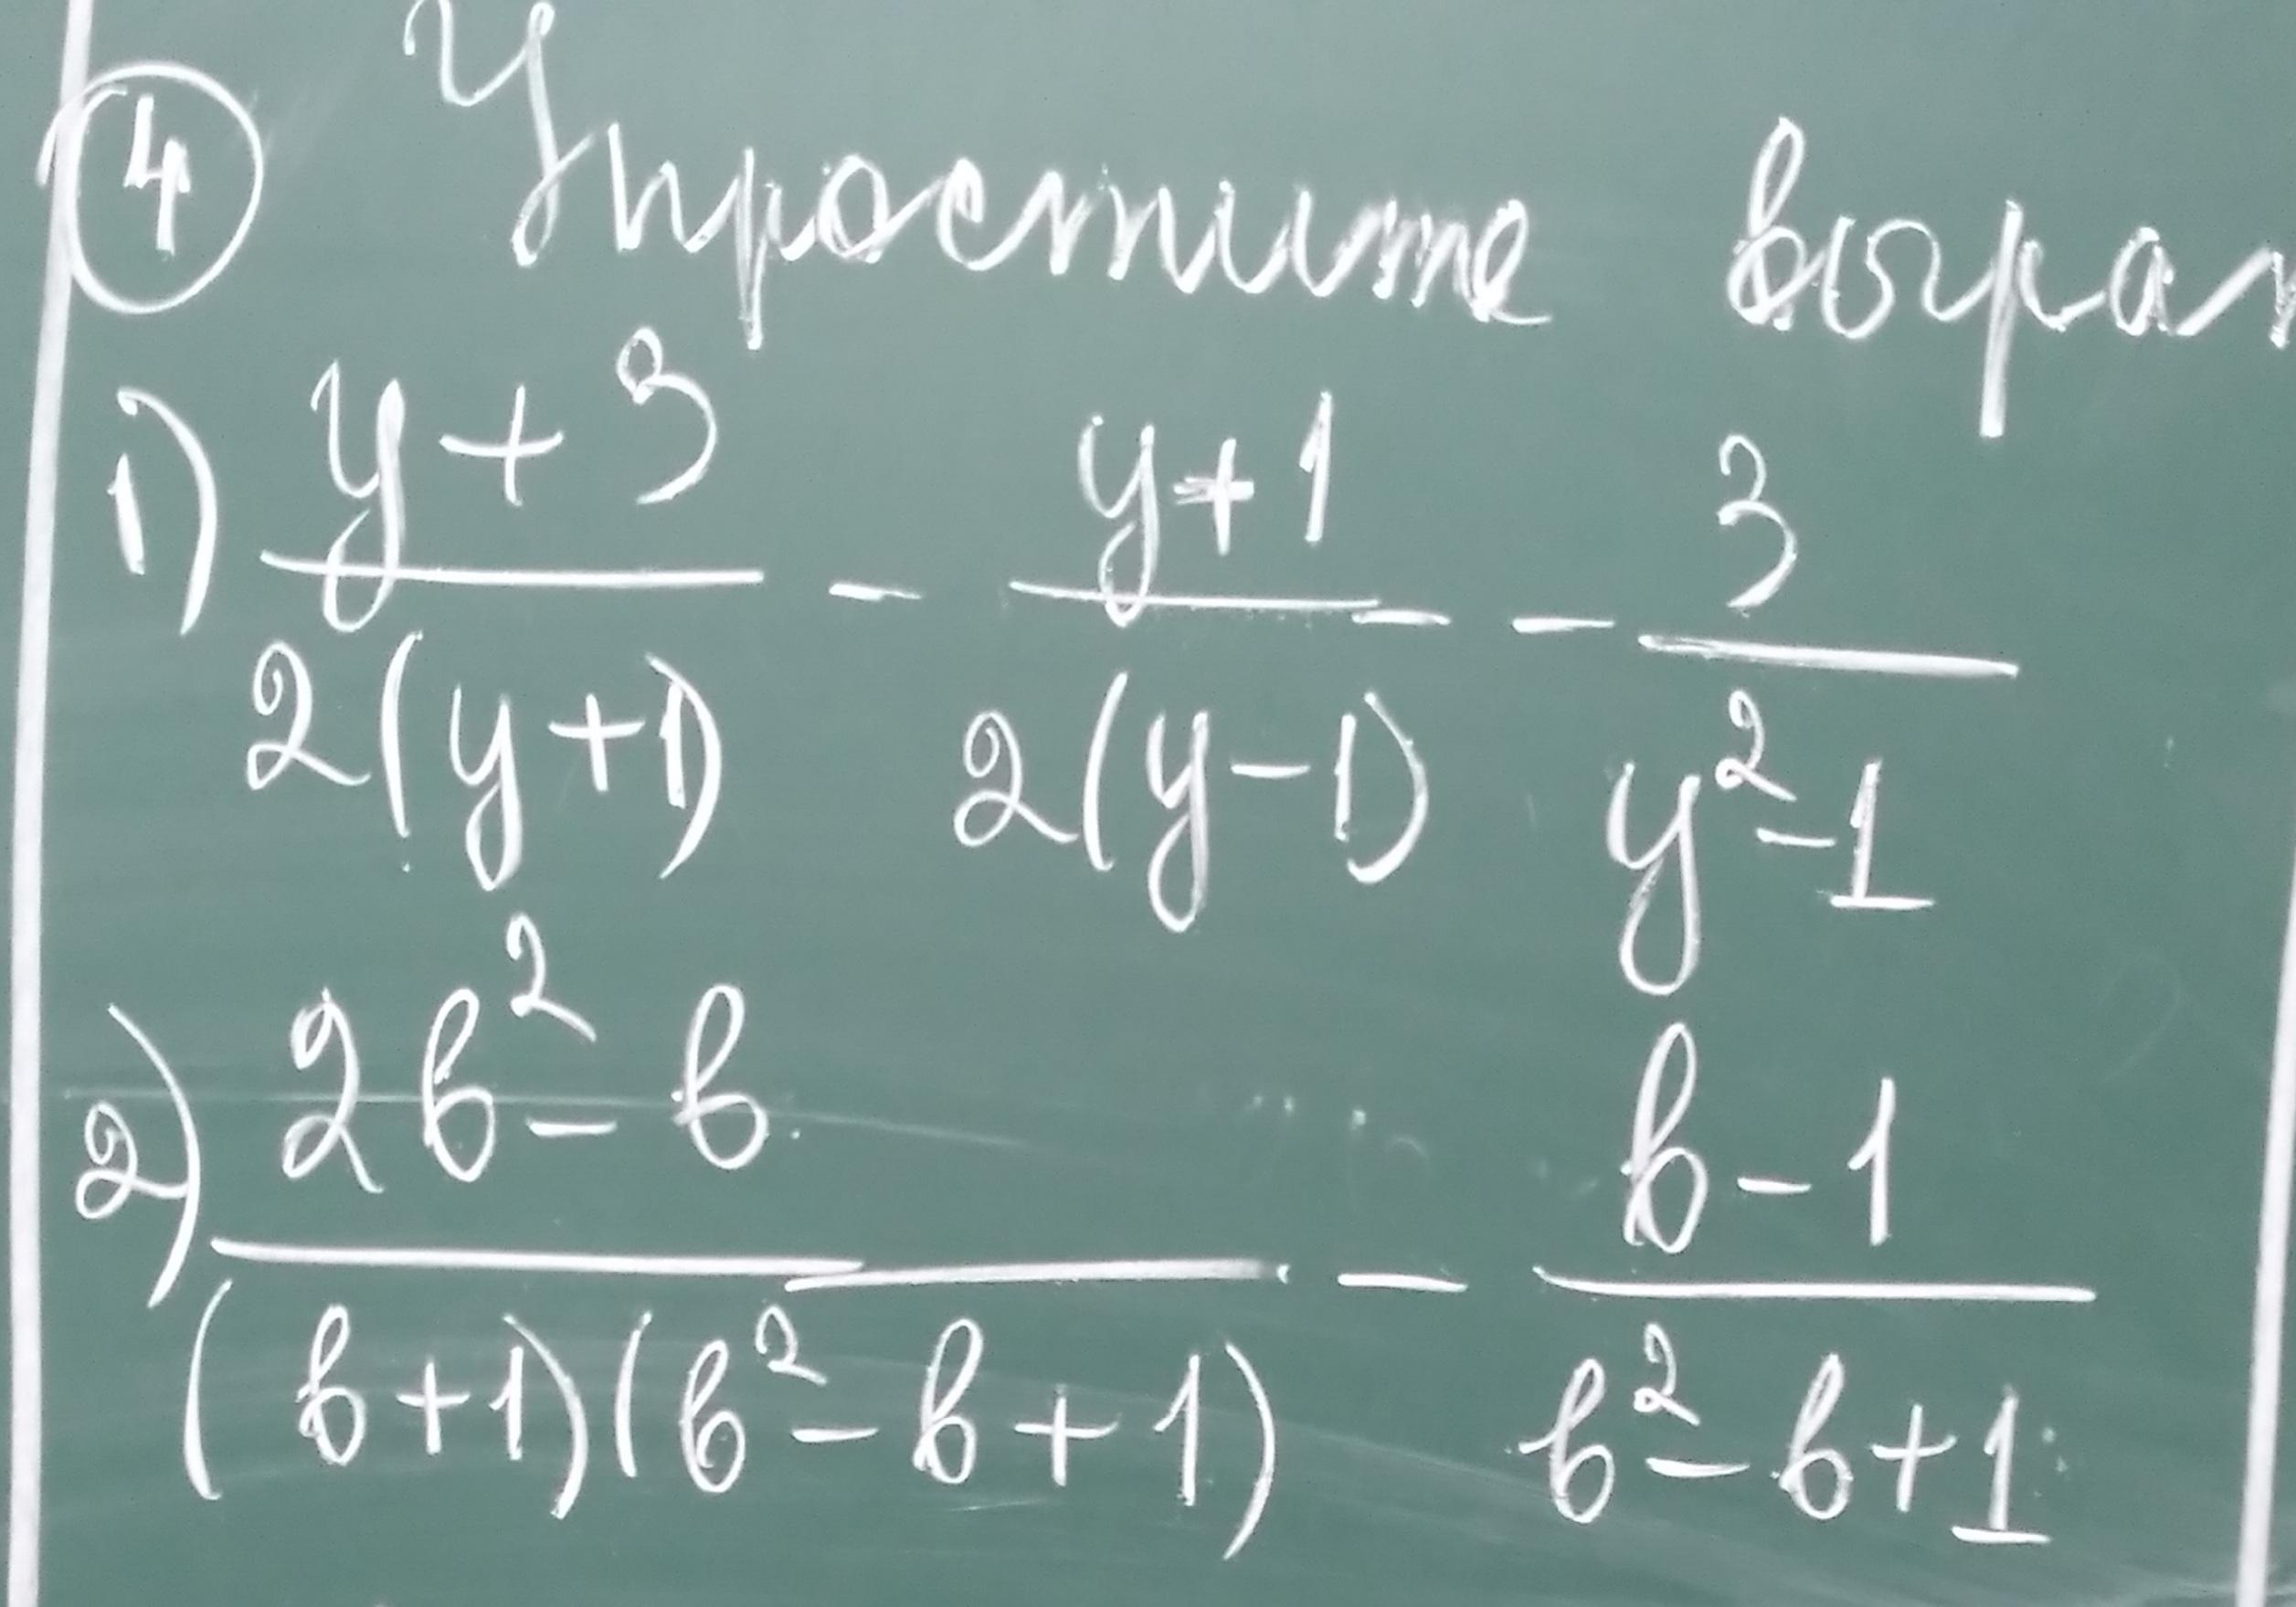 ④ Упростите выраж
1) (y+3)/(2(y+1)) - (y+1)/(2(y-1)) - 3/(y²-1)
2) (2b²-b)/((b+1)(b²-b+1)) - (b-1)/(b²-b+1)